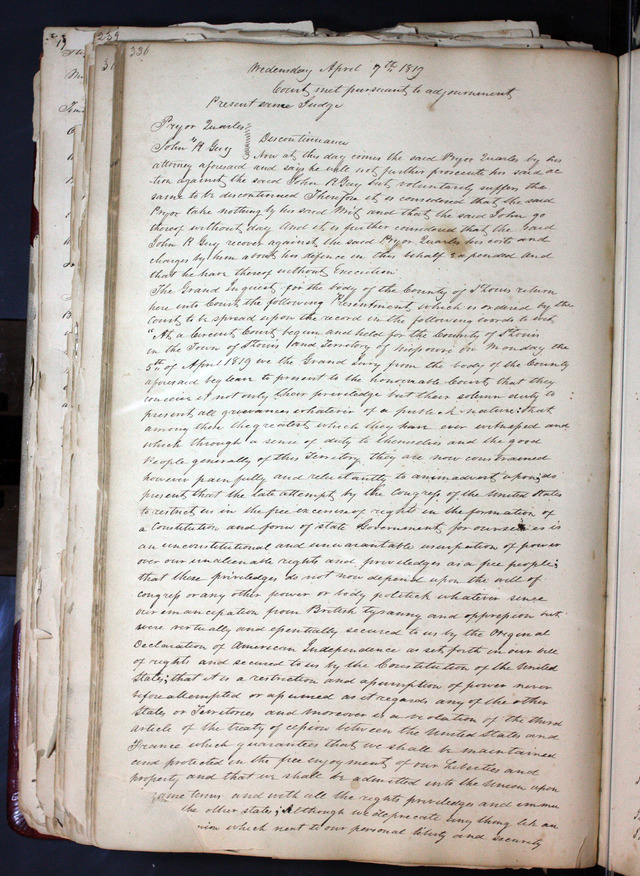 19
239
31
336
Wedensday April 7th 1819
Court met pursuant to adjournment
Present same Judge
Pryor Quarles
vs
John R Guy
Discontinuance
Now at this day comes the said Pryor Quarles by his
attorney aforesaid and says he will not further prosecute his said ac
tion against the said John R Guy but voluntarily suffers the
same to be discontinued Therefore it is considered that the said
Pryor take nothing by his said Writ and that the said John go
thereof without day And it is further considered that the said
John R Guy recover against the said Pryor Quarles his costs and
charges by him about his defence in this behalf expended and
that he have thereof without Execution
The Grand Inquest for the body of the County of St Louis return
here into Court the following Presentment which is ordered by the
Court to be spread upon the record in the following words to wit
"At a Circuit Court begun and held for the County of St Louis
in the Town of St Louis and Territory of Missouri on Monday the
5th of April 1819 we the Grand Jury from the body of the County
aforesaid beg leave to present to the honourable Court that they
conceive it not only their priviledge but their solemn duty to
present all grievances whatever of a publick nature; that
among those the greatest which they have ever witnessed and
which through a sense of duty to themselves and the good
People generally of this Territory they are now constrained
however painfully and reluctantly to animadvert upon; do
present that the late attempt by the Congress of the United States
to restrict us in the free exercise of rights in the formation of
a constitution and form of state Government for ourselves is
an unconstitutional and unwarantable usurpation of power
over our unalienable rights and priviledges as a free people;
that these priviledges do not now depend upon the will of
congress or any other power or body politick whatever since
our emancipation from British tyranny and oppression but
were virtually and essentially secured to us by the Original
Declaration of American Independence as set forth in our bill
of rights and secured to us by the Constitution of the United
States; that it is a restriction and assumption of power never
before attempted or assumed as it regards any of the other
States or Territories and moreover is a violation of the third
article of the treaty of cession between the United States and
France which guaranties that we shall be maintained
and protected in the free enjoyment of our Liberties and
property and that we shall be admitted into the Union upon
same terms and with all the rights priviledges and immu
the other states; Although we deprecate any thing like an
nion which next to our personal liberty and security